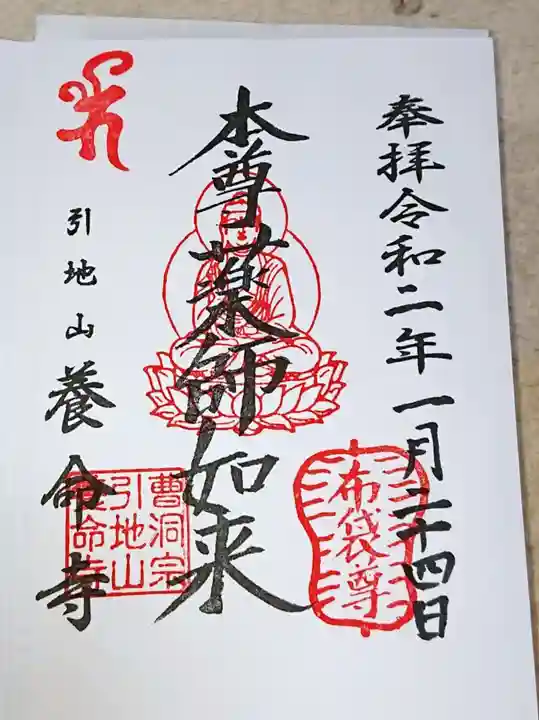 奉拝令和二年一月二十四日
布袋尊
本尊薬師如来
引地山養命寺
曹洞宗
引地山
養命寺